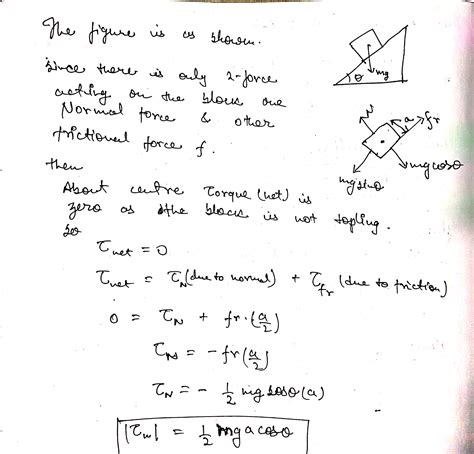 The figure is as shown.
Since there is only 2-force
acting on the block one
Normal force & other
frictional force f.
then
About centre Torque (net) is
zero as the block is not topling.
so
τnet = 0
τnet = τN (due to normal) + τfr (due to friction)
0 = τN + fr.(a/2)
τN = - fr(a/2)
τN = - 1/2 mg cosθ (a)
|τN| = 1/2 mg a cosθ
θ
mg
N
a
fr
mg sinθ
mg cosθ